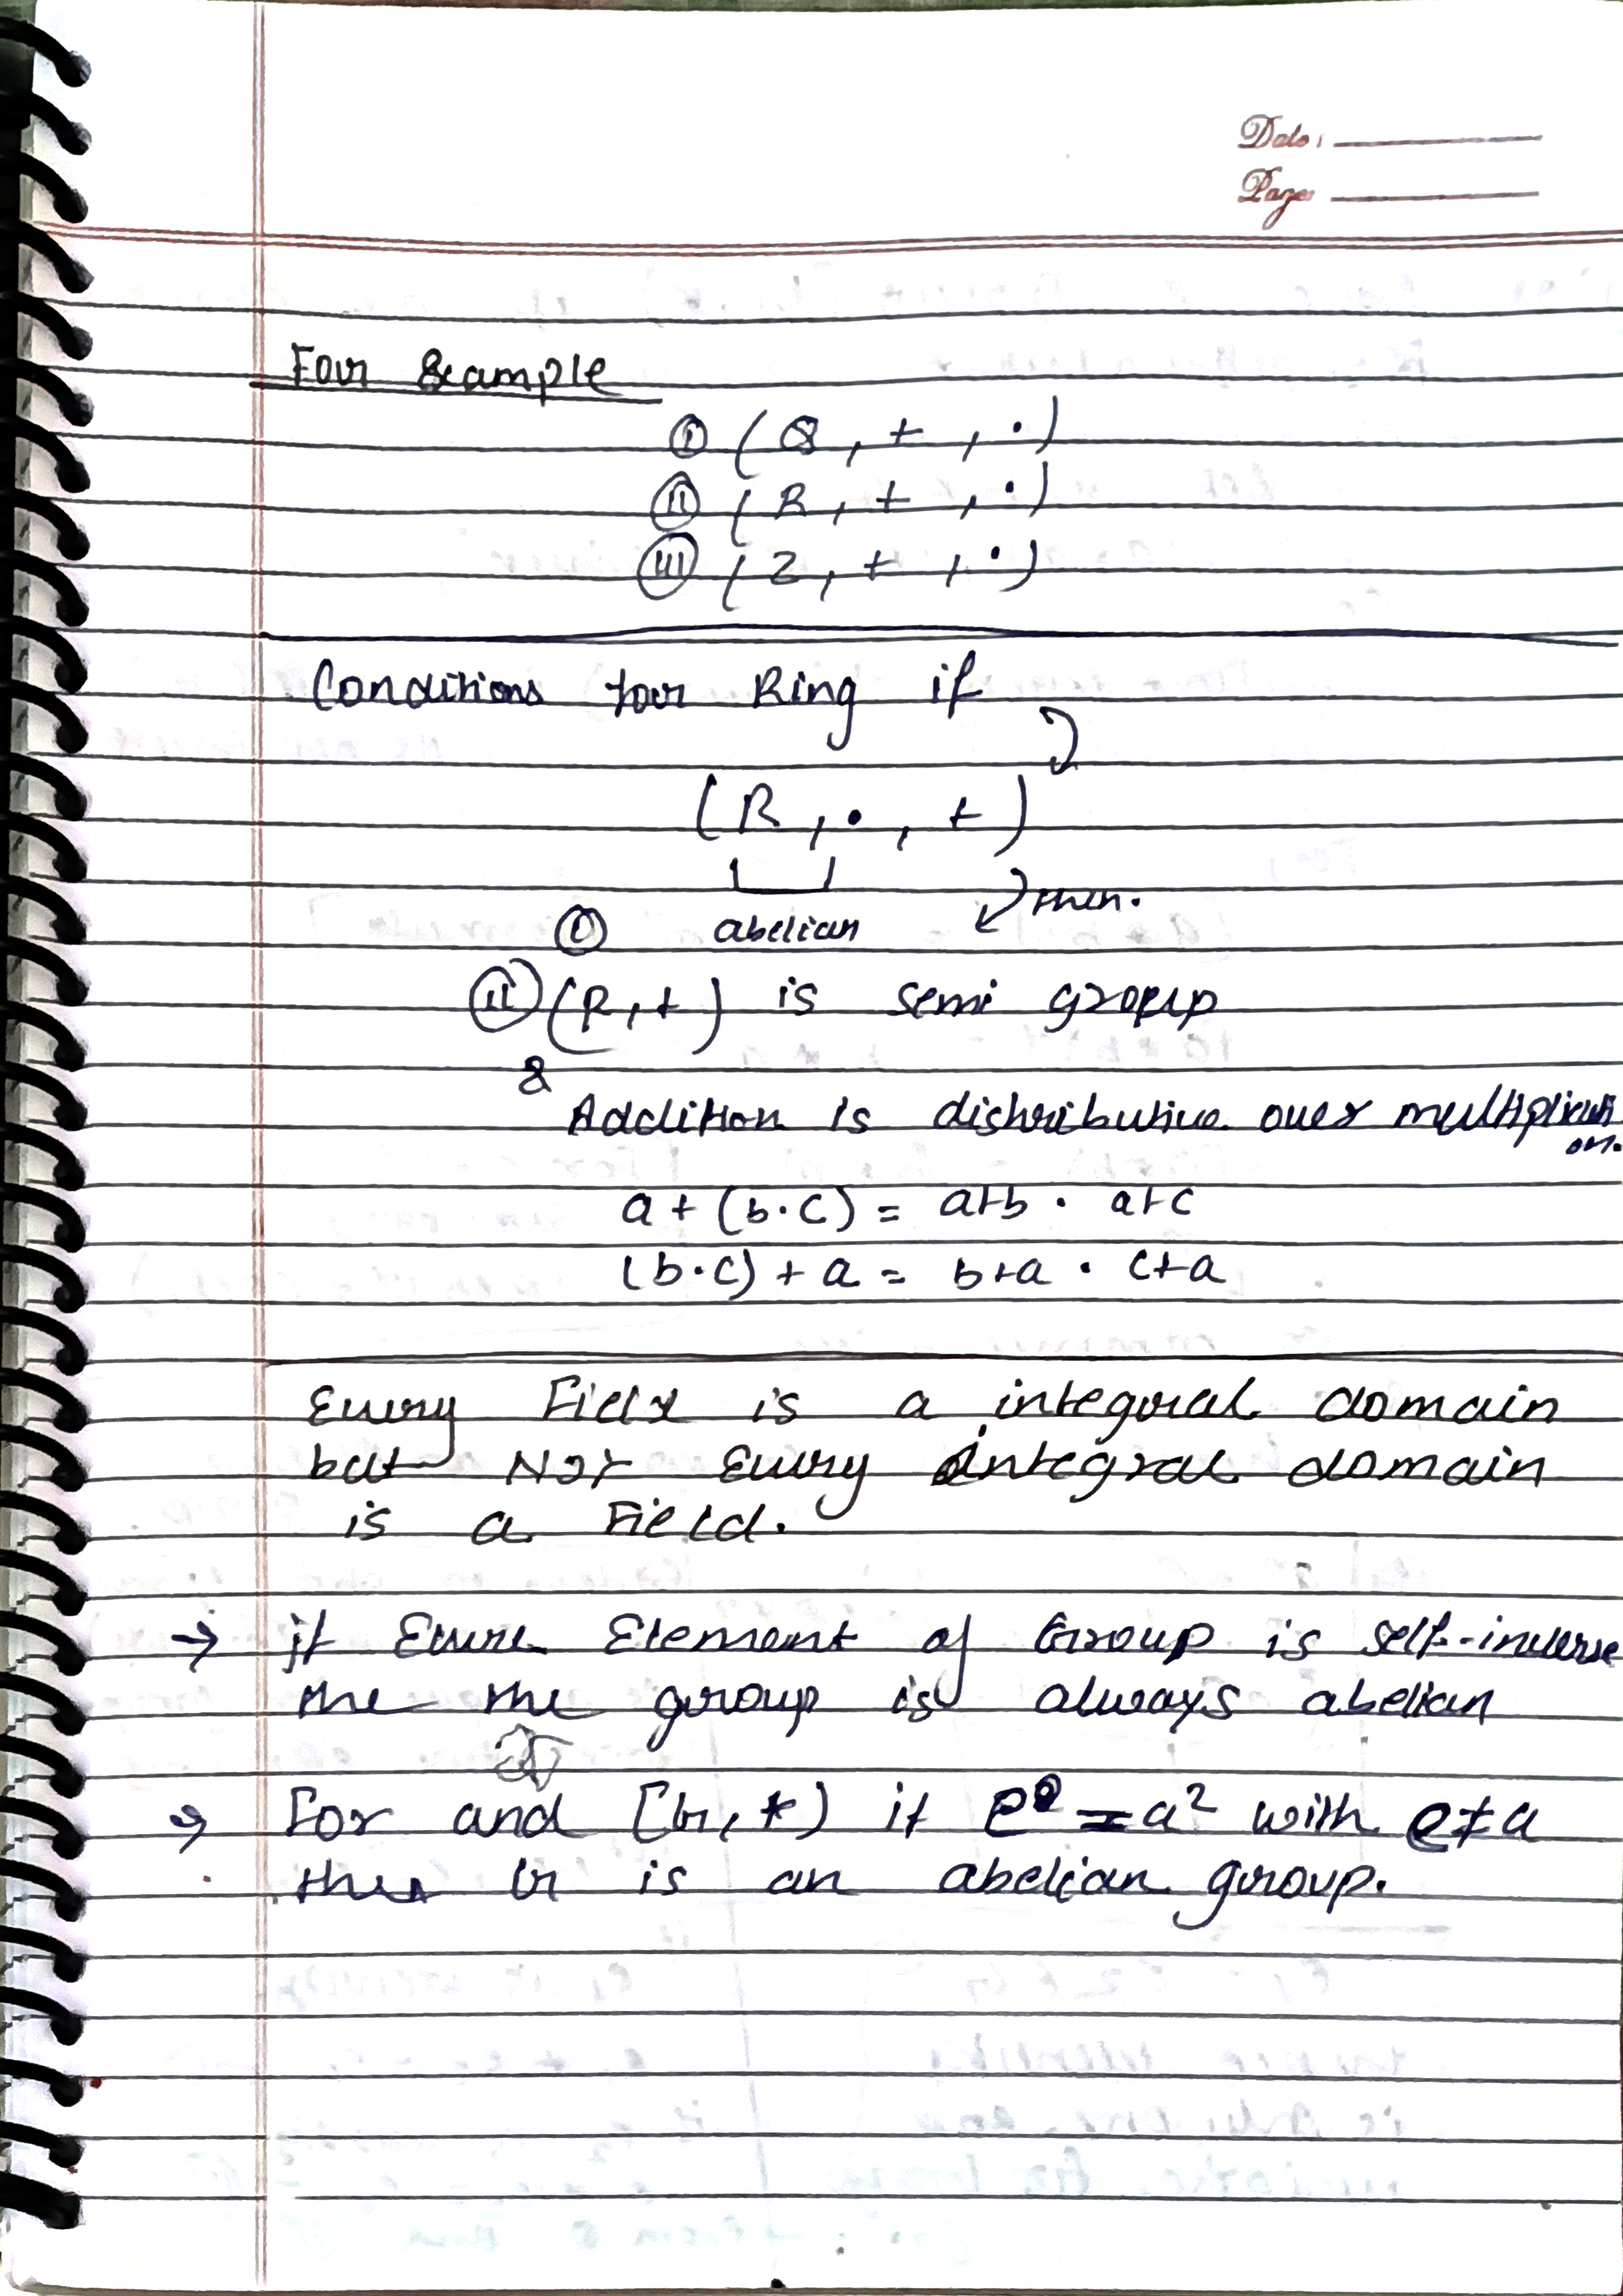 Date:
Page
For Example
(I) (Q, +, ·)
(II) (R, +, ·)
(III) (Z, +, ·)
Conditions for Ring if
(R, ·, +)
then.
(I) abelian
(II) (R, +) is semi group
&
Addition is distributive over multiplication.
a + (b·c) = a+b · a+c
(b·c) + a = b+a · c+a
Every Field is a integral domain
but Not Every integral domain
is a Field.
→ if Every Element of Group is self-inverse
the the group is always abelian
→ For and (G, *) if e² = a² with e≠a
then G is an abelian group.